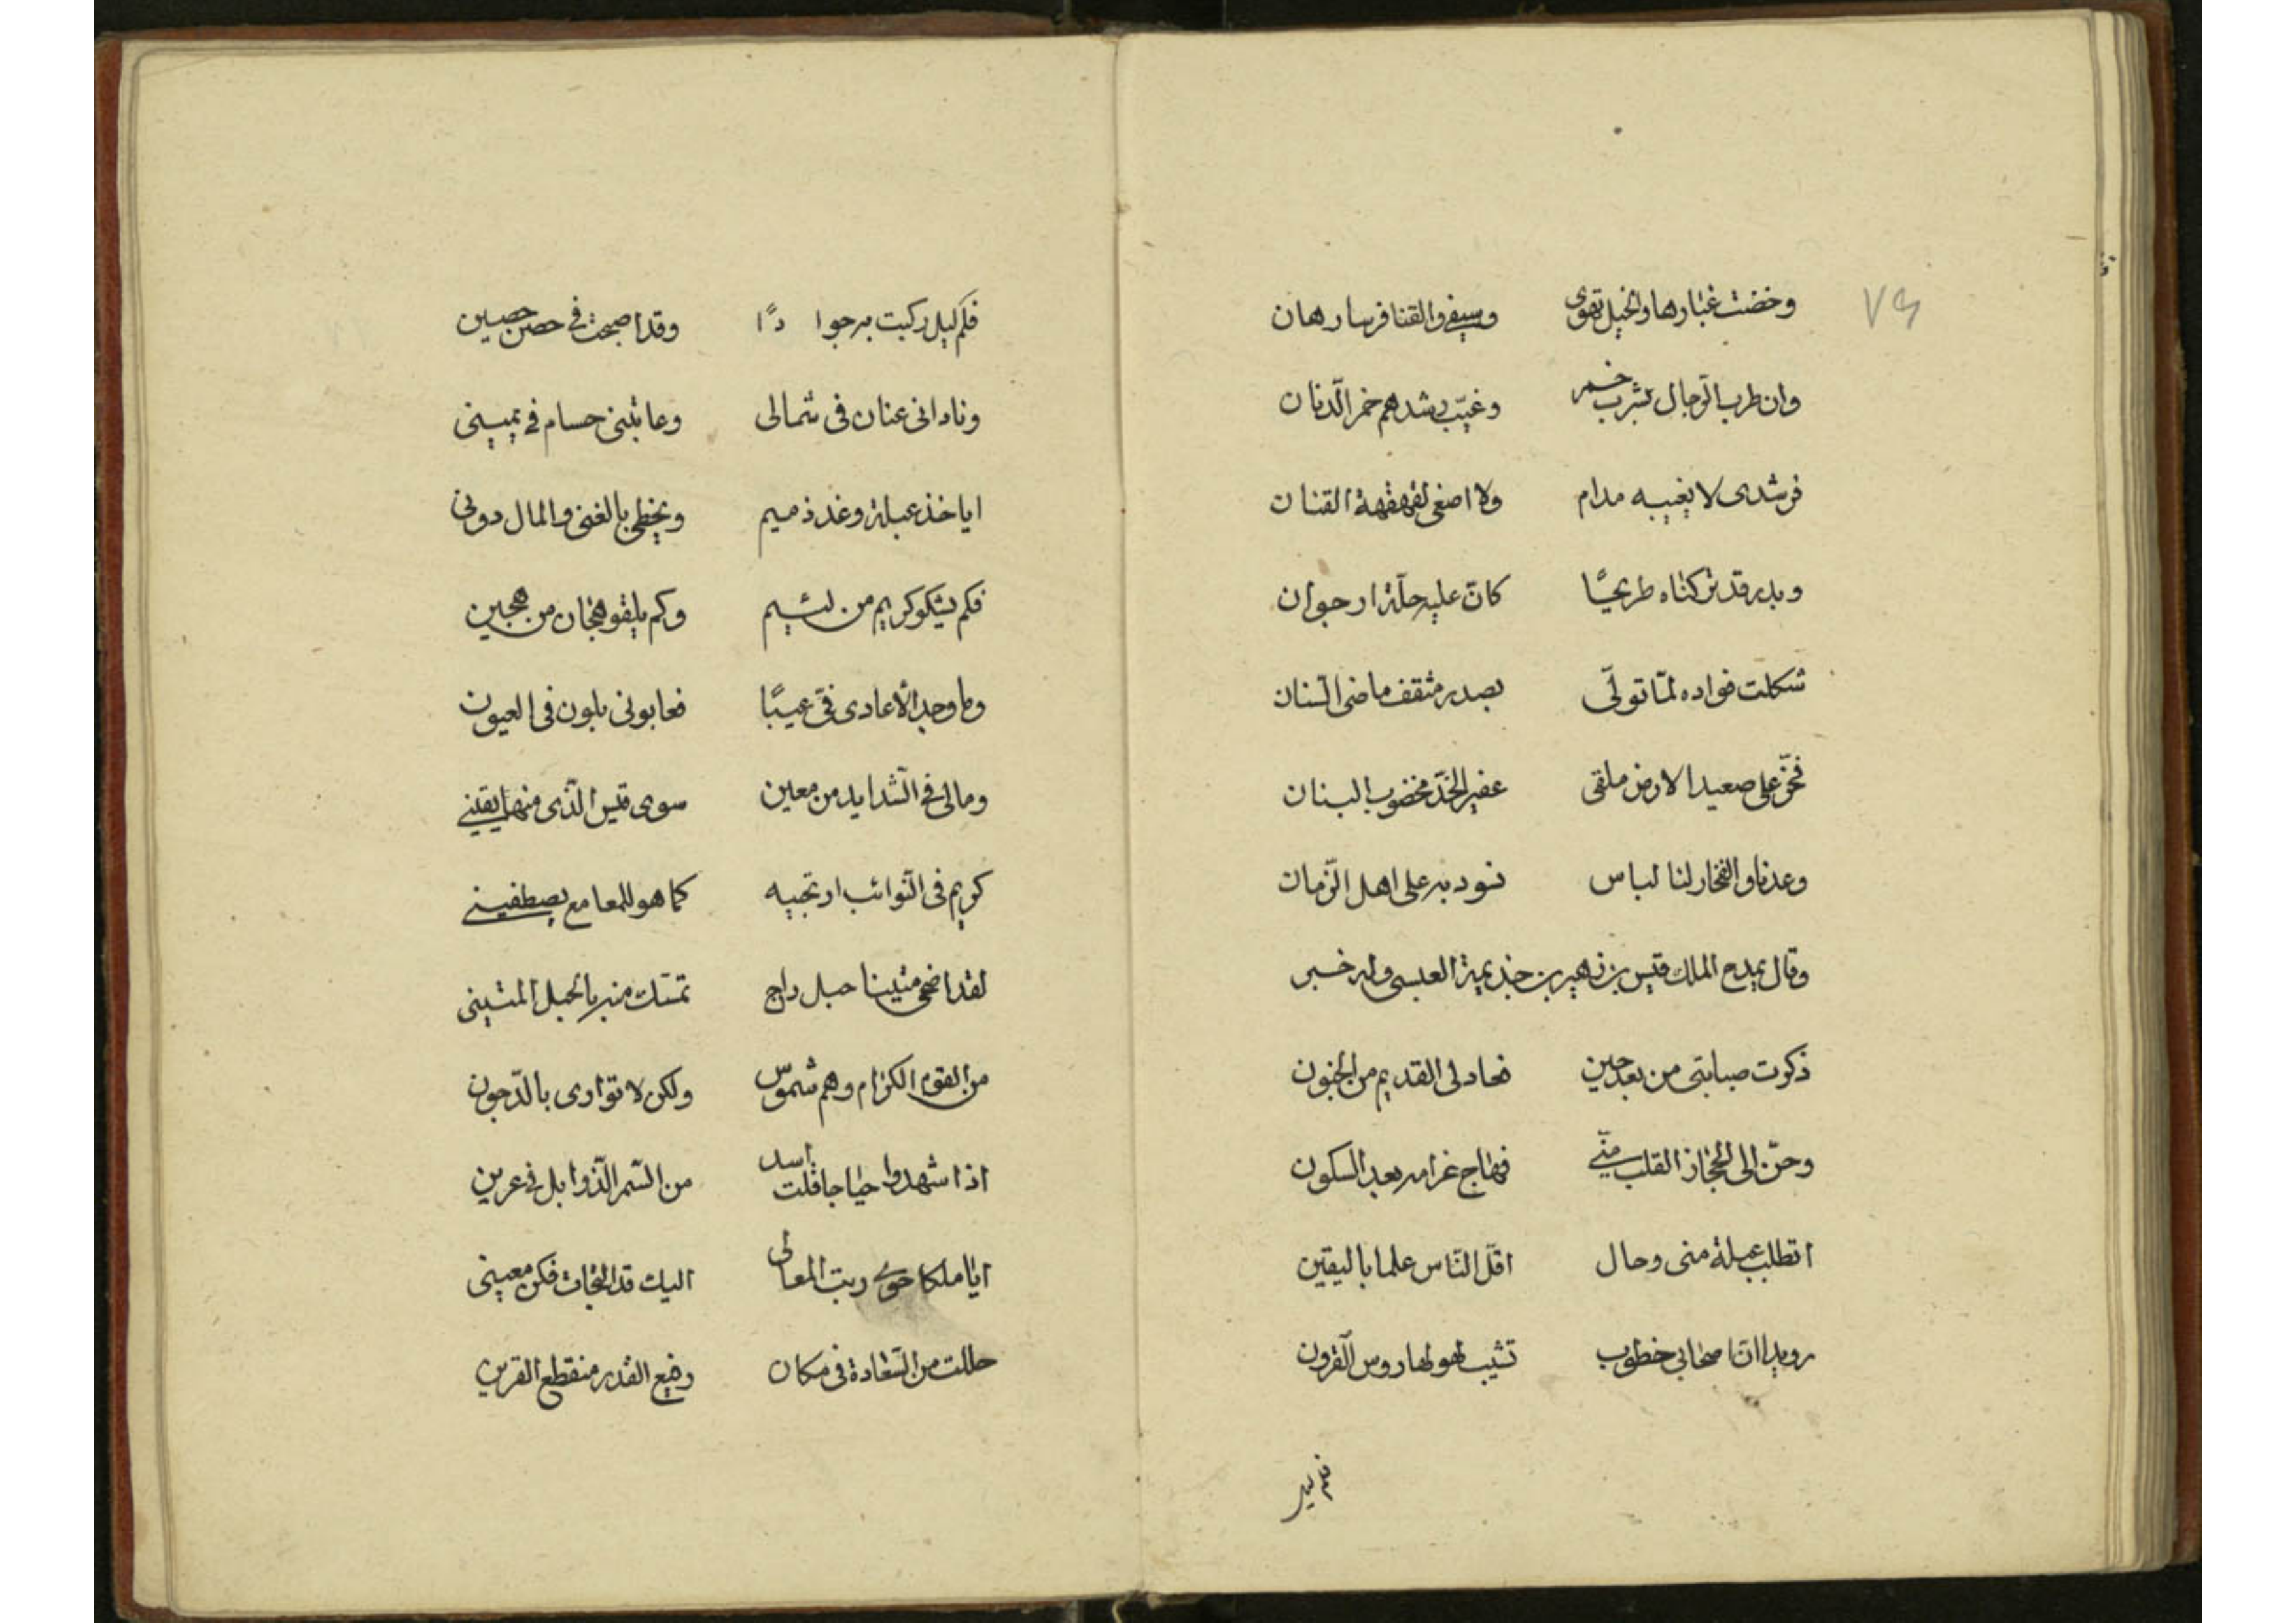 ٧٩
وخضت غبارها والخيل تهوى وسيفى والقنا فرسا رهان
وان طرب الرّجال بشرب خمر وغيّب رشدهم خمر الدّنان
فرشدى لا يغيبه مدام ولا اصغى لقهقهة القنان
وبدر قد تركناه طريحًا كانّ عليه حلّة ارجوان
شككت فواده لمّا تولّى بصدر مثقف ماضى السّنان
فخرّ على صعيد الارض ملقى عفير الخدّ مخضوب البنان
وعدنا والفخار لنا لباس نسود به على اهل الزّمان
وقال يمدح الملك قيس بن زهير بن جذيمة العبسى وله خبر
ذكرت صبابتى من بعد حين فعاد لى القديم من الجنون
وحنّ الى الحجاز القلب منّى فهاج غرامه بعد السكون
اتطلب عبلة منى رجال اقلّ النّاس علما باليقين
رويدا انّ اصحابى خطوب تشيب لهولها روس القرون
فكم ليل
فكم ليل ركبت به جوا دًا وقد اصبحت فى حصن حصين
ونادانى عنان فى شمالى وعاتبنى حسام فى يمينى
اياخذ عبلة وغد ذميم ويحظى بالغنى والمال دونى
فكم يشكو كريم من لئيم وكم يلقى هجان من هجين
وما وجد الأعادى فىّ عيبًا فعابونى بلون فى العيون
ومالى فى الشّدايد من معين سوى قيس الّذى منها يقينى
كريم فى النّوائب ارتجيه كما هو للمعامع يصطفينى
لقد اضحى متينا حبل راج تمسّك منه بالحبل المتينى
من القوم الكرام وهم شموس ولكن لا توارى بالدّجون
اذا شهدوا هياجا قلت اسد من السّمر الذّوابل فى عرين
ايا ملكا حوى رتب المعالى اليك قد التجات فكن معينى
حللت من السّعادة فى مكان رفيع القدر منقطع القرين